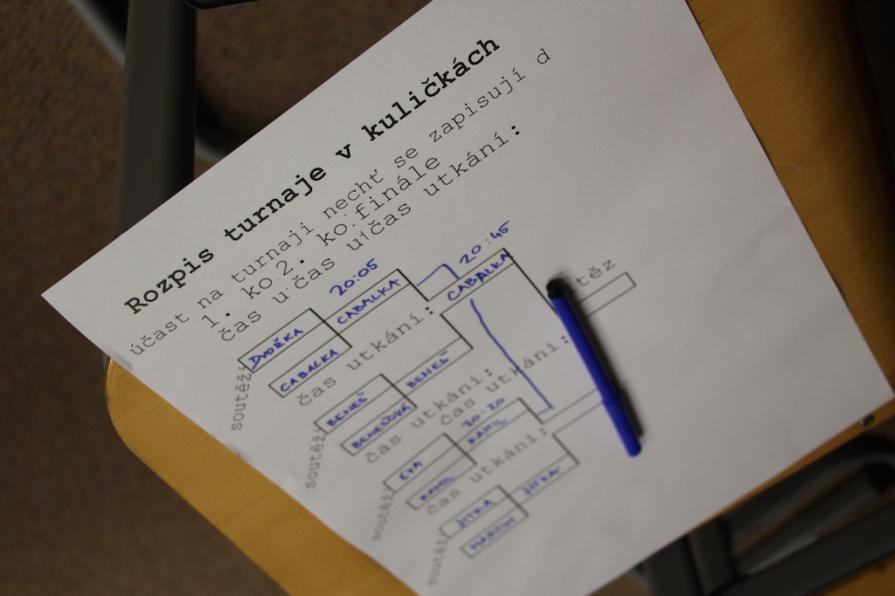 Rozpis turnaje v kuličkách
účast na turnaji nechť se zapisují d
1. ko 2. ko finále
čas u čas u čas utkání:
20:05
20:45
DVOŘKA
CABALKA
CABALKA
CABALKA
těz
soutěží
čas utkání:
BENEŠ
BENEŠ
BENEŠOVÁ
soutěží
čas utkání:
čas utkání:
20:20
EVA
KAMIL
KAMIL
soutěží
čas utkání:
JITKA
JITKA
MARTIN
soutěží